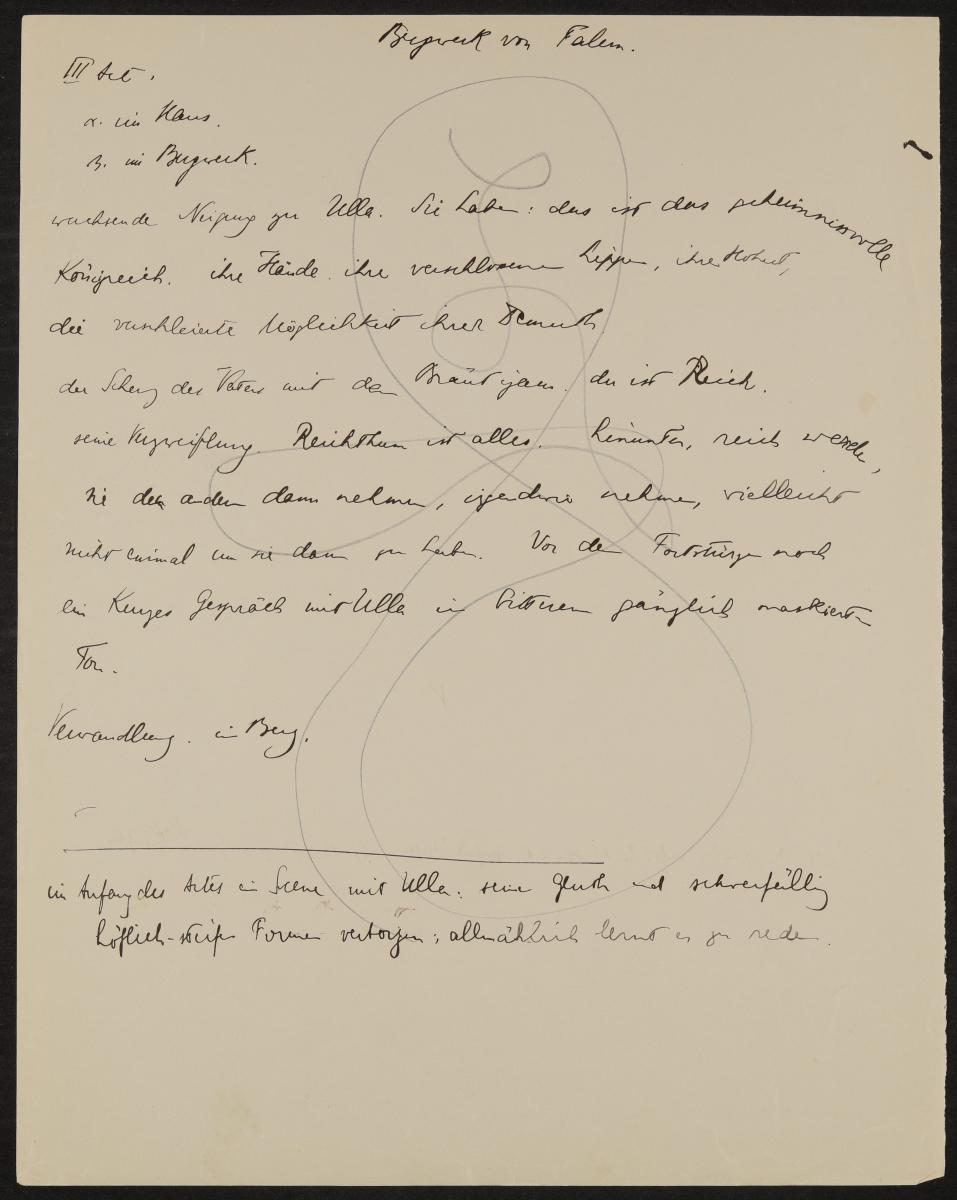 Bergwerk von Falun.
III Act.
α. im Haus.
β. im Bergwerk.
wachsende Neigung zu Ulla. Sie haben: das ist das geheimnisvolle
Königreich. ihre Hände. ihre verschlossenen Lippen, ihre Hoheit,
die verschleierte Möglichkeit ihrer Demuth.
der Scherz des Vaters mit dem Bräutigam. der ist Reich.
seine Verzweiflung. Reichthum ist alles. hinunter, reich werden,
sie dem andern dann nehmen, irgendwie nehmen, vielleicht
nicht einmal um sie dann zu haben. Vor dem Fortstürzen noch
ein Kurzes Gespräch mit Ulla in bitterem gänzlich maskierten
Ton.
Verwandlung. im Berg.
im Anfang des Actes ein Scene mit Ulla: seine Gluth und schwerfällig
höflich-steife Formen verborgen; allmählich lernt er zu reden.